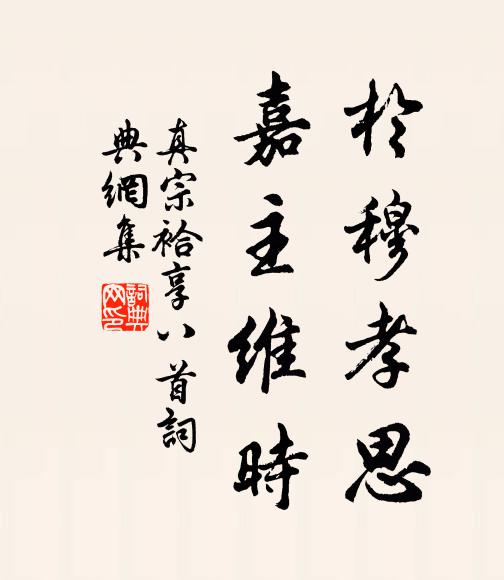 於穆孝思
嘉主維時
真宗祫享八首詞
典網集
詞典
网印